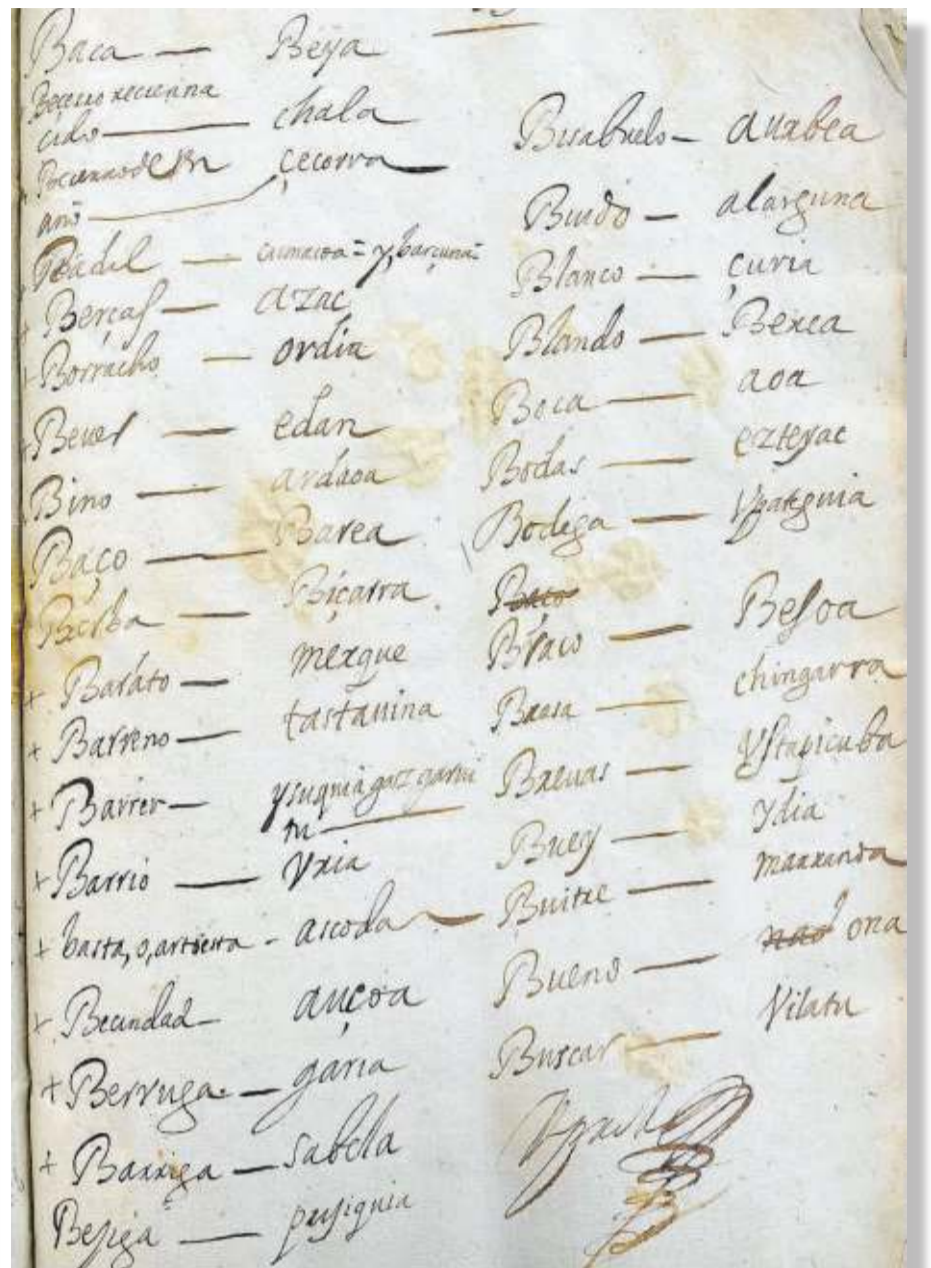 Baca — Beya
Beçerro reçienna
çido — chala
Beçerro de Un
año — çecorra
Badil —
Berças — azac
Borracho — ordia
Bever — edan
Bino — ardaoa
Baço — Barea
Barba — Biçarra
+ Barato — merque
+ Barreno — tastauina
+ Barrer — ysuquia gaz garui
tu —
+ Barrio — Vria
+ basta, o, artesa - ascoda
+ Becindad — auçoa
+ Berruga — garia
+ Barriga — sabela
Besiga — pusiguia
Bisabuelo — auabea
Biudo — alarguna
Blanco — çuria
Blando — Berea
Boca — aoa
Bodas — ezteyac
Bodega — Upateguia
Braço — Besoa
Brasa — chingarra
Breuas — Ystapicuba
Buey — ydia
Buitre — marranoa
Bueno — ona
Buscar — Vilatu